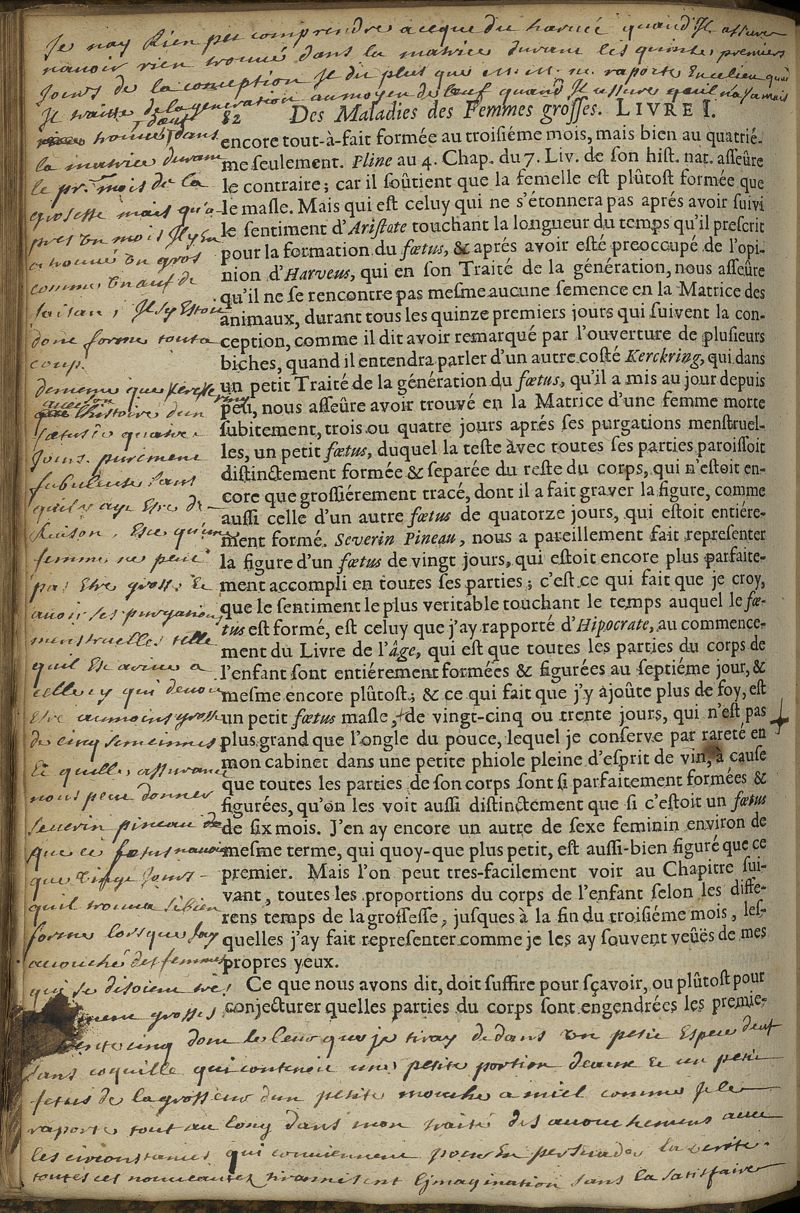 Je nay Rien peu comprendre a ceque dit harvée quand Jl assure
navoir rien trouvé dans la matrice durant les quinze premiers
Jours de la conception Je dit plus que raporte En celieu quand
Jl traitte de la generation au moyen de lœuf quand Jl assure quil na Jamais
82 Des Maladies des Femmes grosses. LIVRE I.
encore tout-à-fait formée au troisiéme mois, mais bien au quatrié-
me seulement. Pline au 4. Chap. du 7. Liv. de son hist. nat. asseûre
le contraire; car il soûtient que la femelle est plûtost formée que
le masle. Mais qui est celuy qui ne s'étonnera pas aprés avoir suivi
le sentiment d'Aristate touchant la longueur du temps qu'il prescrit
pour la formation du fœtus, & aprés avoir esté preoccupé de l'opi-
nion d'Harveus, qui en son Traité de la génération, nous asseûre
qu'il ne se rencontre pas mesme aucune semence en la Matrice des
animaux, durant tous les quinze premiers jours qui suivent la con-
ception, comme il dit avoir remarqué par l'ouverture de plusieurs
biches, quand il entendra parler d'un autre costé Kerckring, qui dans
un petit Traité de la génération du fœtus, qu'il a mis au jour depuis
peu, nous asseûre avoir trouvé en la Matrice d'une femme morte
subitement, trois ou quatre jours aprés ses purgations menstruel-
les, un petit fœtus, duquel la teste avec toutes ses parties paroissoit
distinctement formée & separée du reste du corps, qui n'estoit en-
core que grossiérement tracé, dont il a fait graver la figure, comme
aussi celle d'un autre fœtus de quatorze jours, qui estoit entiére-
ment formé. Severin Pineau, nous a pareillement fait representer
la figure d'un fœtus de vingt jours, qui estoit encore plus parfaite-
ment accompli en toutes ses parties; c'est ce qui fait que je croy,
que le sentiment le plus veritable touchant le temps auquel le fœ-
tus est formé, est celuy que j'ay rapporté d'Hipocrate, au commence-
ment du Livre de l'âge, qui est que toutes les parties du corps de
l'enfant sont entiérement formées & figurées au septiéme jour, &
mesme encore plûtost; & ce qui fait que j'y ajoûte plus de foy, est
un petit fœtus masle, de vingt-cinq ou trente jours, qui n'est pas
plus grand que l'ongle du pouce, lequel je conserve par rareté en
mon cabinet dans une petite phiole pleine d'esprit de vin, à cause
que toutes les parties de son corps sont si parfaitement formées &
figurées, qu'on les voit aussi distinctement que si c'estoit un fœtus
de six mois. J'en ay encore un autre de sexe feminin environ de
mesme terme, qui quoy-que plus petit, est aussi-bien figuré que ce
premier. Mais l'on peut tres-facilement voir au Chapitre sui-
vant, toutes les proportions du corps de l'enfant selon les diffe-
rens temps de la grossesse, jusques à la fin du troisiéme mois, les-
quelles j'ay fait representer comme je les ay souvent veûës de mes
propres yeux.
Ce que nous avons dit, doit suffire pour sçavoir, ou plûtost pour
conjecturer quelles parties du corps sont engendrées les premie-
trouvé dans
la matrice durant
le pr. mois de la
grosesse mais qua-
pres un mois Jl y En
a trouvé un gros
comme un œuf de
faisan, Jl sy Estoit
donc formé tout a
coup.
dememe que
lhistoire dun
fœtus de quatre
Jours purement
fabuleuse sans
quil y aye Etre de
Raison, Esce qu'une
femme ne peut
pas Etre grosse Et
avoir ses purgations
menstruelles telle
quil Est arrivé a
celle cy qui devoit
Etre aumoins grosse
de cinq semeinnes
Et quelle assurance
nous peut donner
severin pineau de
que ce fœtus navoit
que vingt Jours
quil trouva sibien
formé lorsque Jay
acouché des femmes
qui se disoient
grosses
cinq dont le leur que je tiray dedans un petit Espece dœuf
sans coquille qui contenoit une petite portion deaux Et un petit
fetus de la grosseur dun petite mouche a miel comme Je le
raporte tout au long dans mon traité des acouchemens avec
les circonstances qui conviennent pour En persuader la verité.
toutes ces nouveautez tirannisent Lymagination sans la satisfaire